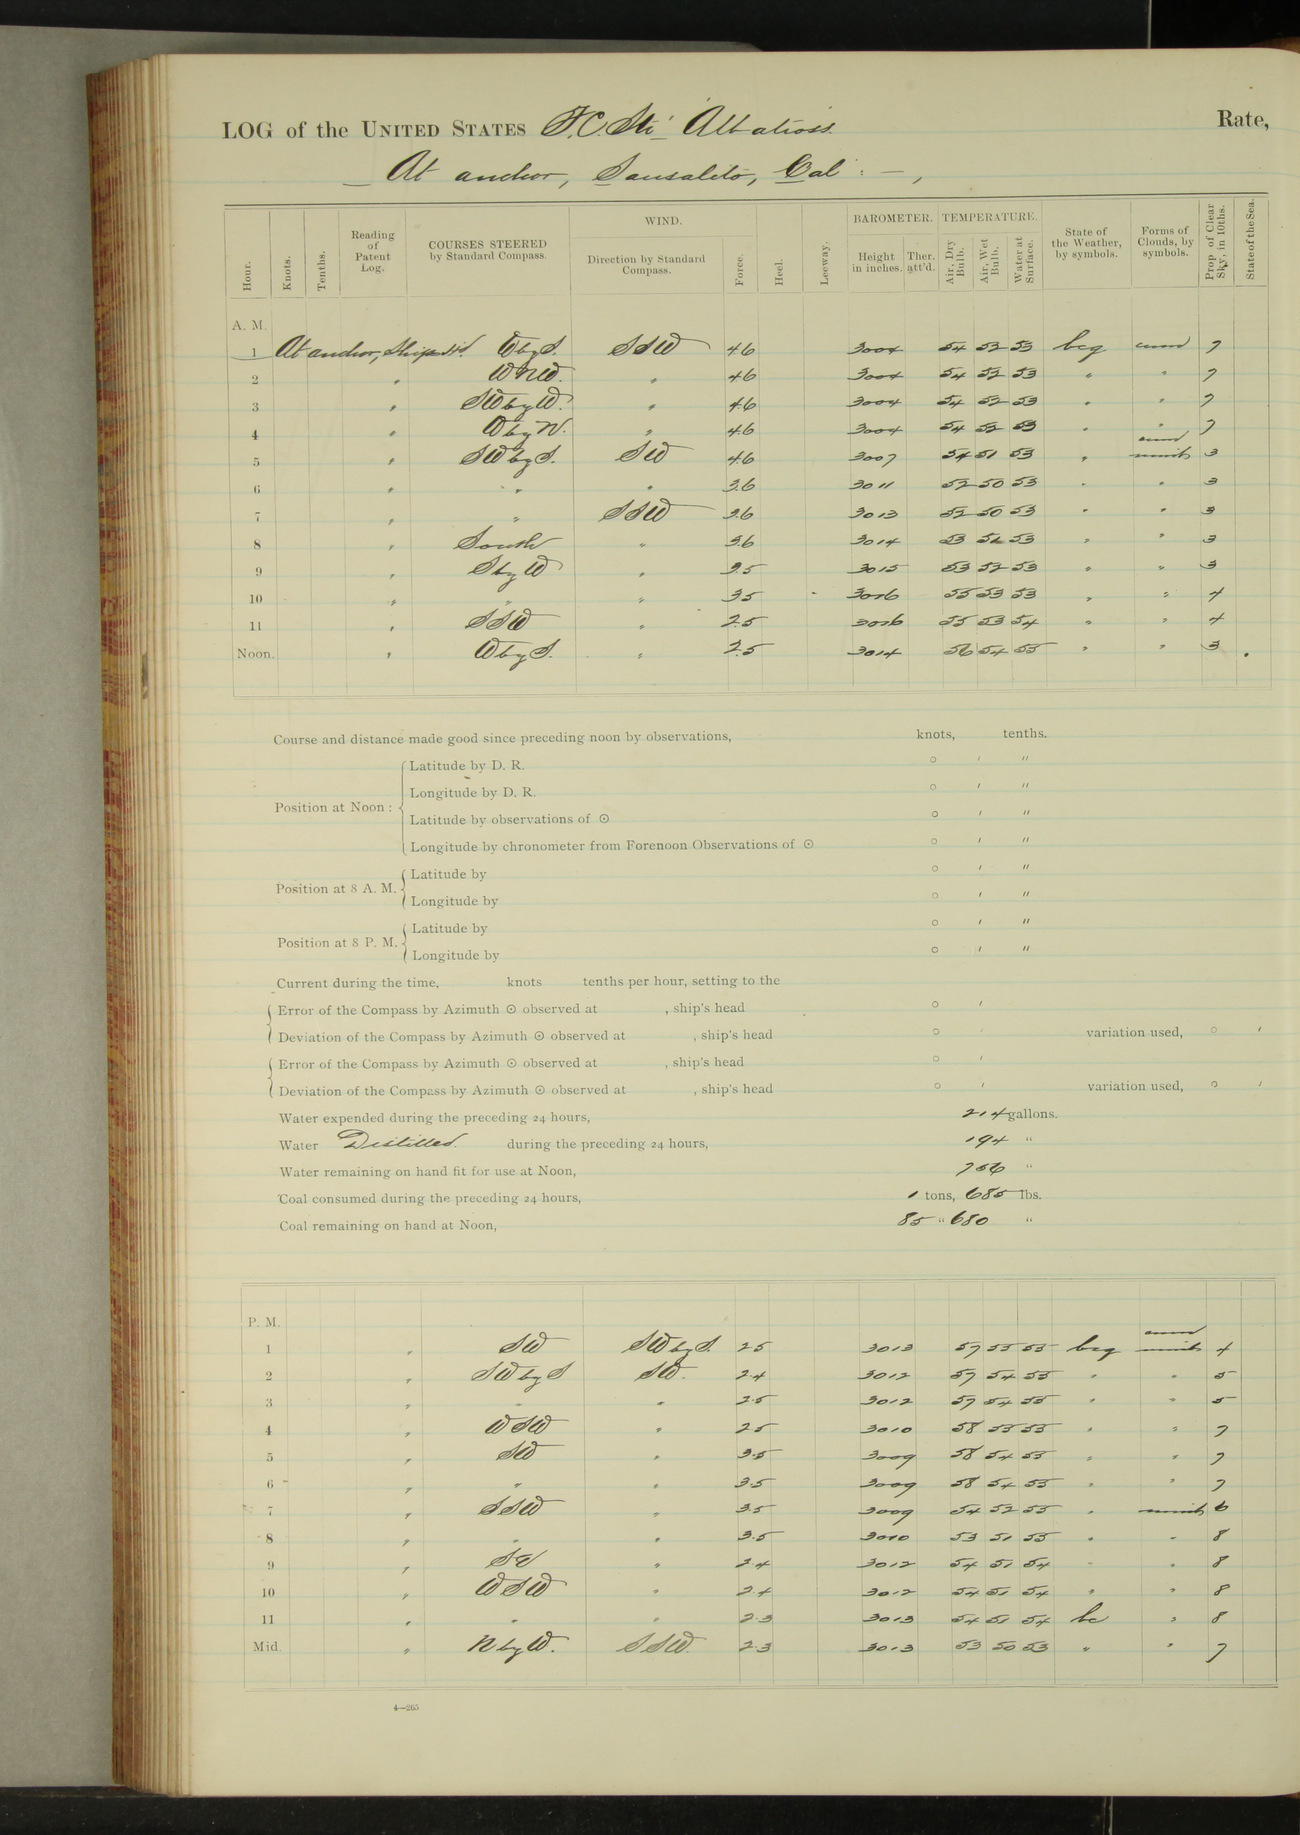 LOG of the UNITED STATES F.C. Str. Albatross. Rate,
At anchor, Sausalito, Cal: —,
Hour. Knots. Tenths. Reading of Patent Log. COURSES STEERED by Standard Compass. WIND. Direction by Standard Compass. Force. Heel. Leeway. BAROMETER. Height in inches. Ther. att'd. TEMPERATURE. Air, Dry Bulb. Air, Wet Bulb. Water at Surface. State of the Weather, by symbols. Forms of Clouds, by symbols. Prop. of Clear Sky, in 10ths. State of the Sea.
A. M.
1 At anchor, Ship's h'd WbyS. SSW 4.6 3004 54 53 53 bcg cum 7
2 " WNW. " 4.6 3004 54 52 53 " " 7
3 " SWbyW. " 4.6 3004 54 52 53 " " 7
4 " WbyN. " 4.6 3004 54 52 53 " " 7
5 " SWbyS. SW 4.6 3007 54 51 53 " cum nimb 3
6 " " " 3.6 3011 52 50 53 " " 3
7 " " SSW 3.6 3013 52 50 53 " " 3
8 " South " 3.6 3014 53 52 53 " " 3
9 " SbyW " 3.5 3015 53 52 53 " " 3
10 " " " 3.5 3016 55 53 53 " " 4
11 " SSW " 2.5 3016 55 53 54 " " 4
Noon. " WbyS. " 2.5 3014 56 54 55 " " 3
Course and distance made good since preceding noon by observations, knots, tenths.
Position at Noon: Latitude by D. R. ° ′ ″
Longitude by D. R. ° ′ ″
Latitude by observations of ☉ ° ′ ″
Longitude by chronometer from Forenoon Observations of ☉ ° ′ ″
Position at 8 A. M. Latitude by ° ′ ″
Longitude by ° ′ ″
Position at 8 P. M. Latitude by ° ′ ″
Longitude by ° ′ ″
Current during the time, knots tenths per hour, setting to the
Error of the Compass by Azimuth ☉ observed at , ship's head ° ′
Deviation of the Compass by Azimuth ☉ observed at , ship's head ° ′ variation used, ° ′
Error of the Compass by Azimuth ☉ observed at , ship's head ° ′
Deviation of the Compass by Azimuth ☉ observed at , ship's head ° ′ variation used, ° ′
Water expended during the preceding 24 hours, 214 gallons.
Water Distilled. during the preceding 24 hours, 194 "
Water remaining on hand fit for use at Noon, 756 "
Coal consumed during the preceding 24 hours, 1 tons, 685 lbs.
Coal remaining on hand at Noon, 85 " 680 "
P. M.
1 " SW SWbyS. 2.5 3013 57 55 55 bcg cum nimb 4
2 " SWbyS SW. 2.4 3012 57 54 55 " " 5
3 " " " 2.5 3012 57 54 55 " " 5
4 " WSW " 2.5 3010 58 55 55 " " 7
5 " SW " 3.5 3009 58 54 55 " " 7
6 " " " 3.5 3009 58 54 55 " " 7
7 " SSW " 3.5 3009 54 52 55 " nimb 6
8 " " " 3.5 3010 53 51 55 " " 8
9 " " 2.4 3012 54 51 54 " " 8
10 " WSW " 2.4 3012 54 51 54 " " 8
11 " " " 2.3 3013 54 51 54 bc " 8
Mid. " NbyW. SSW. 2.3 3013 53 50 53 " " 7
4—265